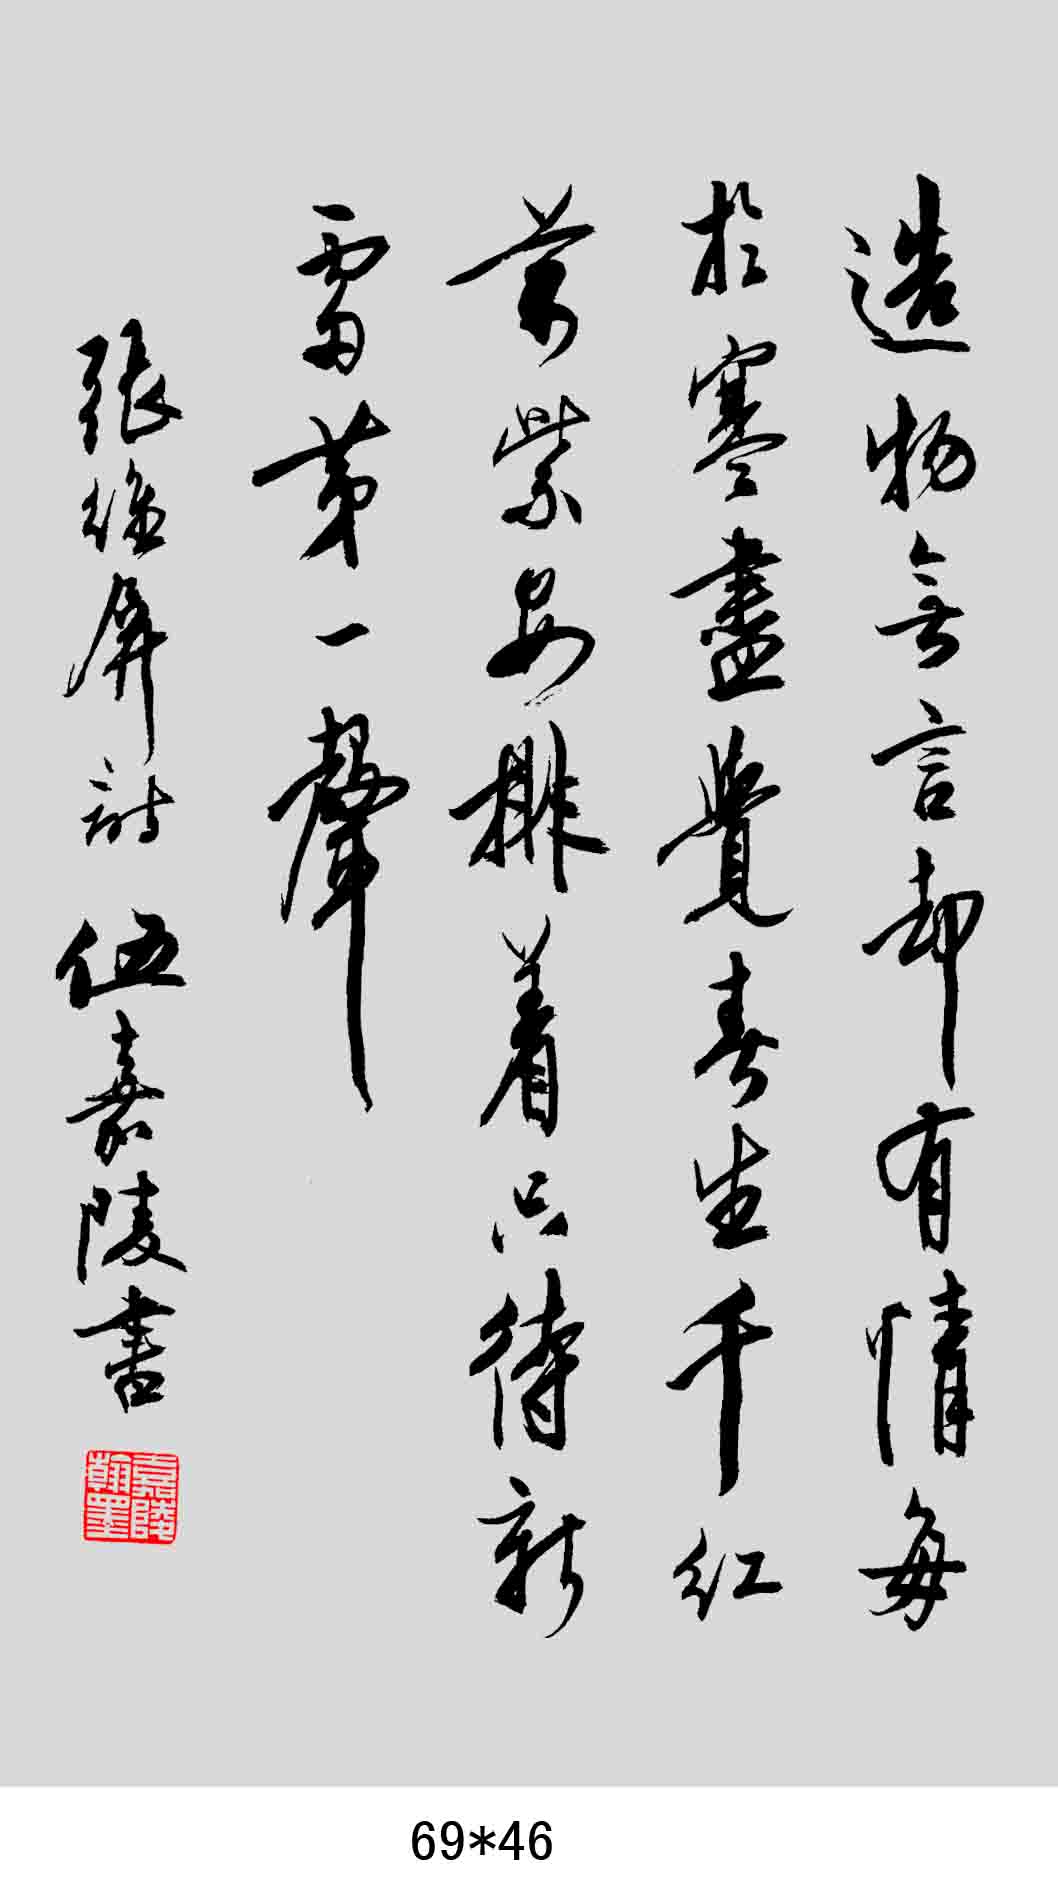 造物無言却有情每
於寒盡覺春生千紅
萬紫安排着只待新
雷第一聲
張維屏詩 伍嘉陵書
嘉陵翰墨
69*46